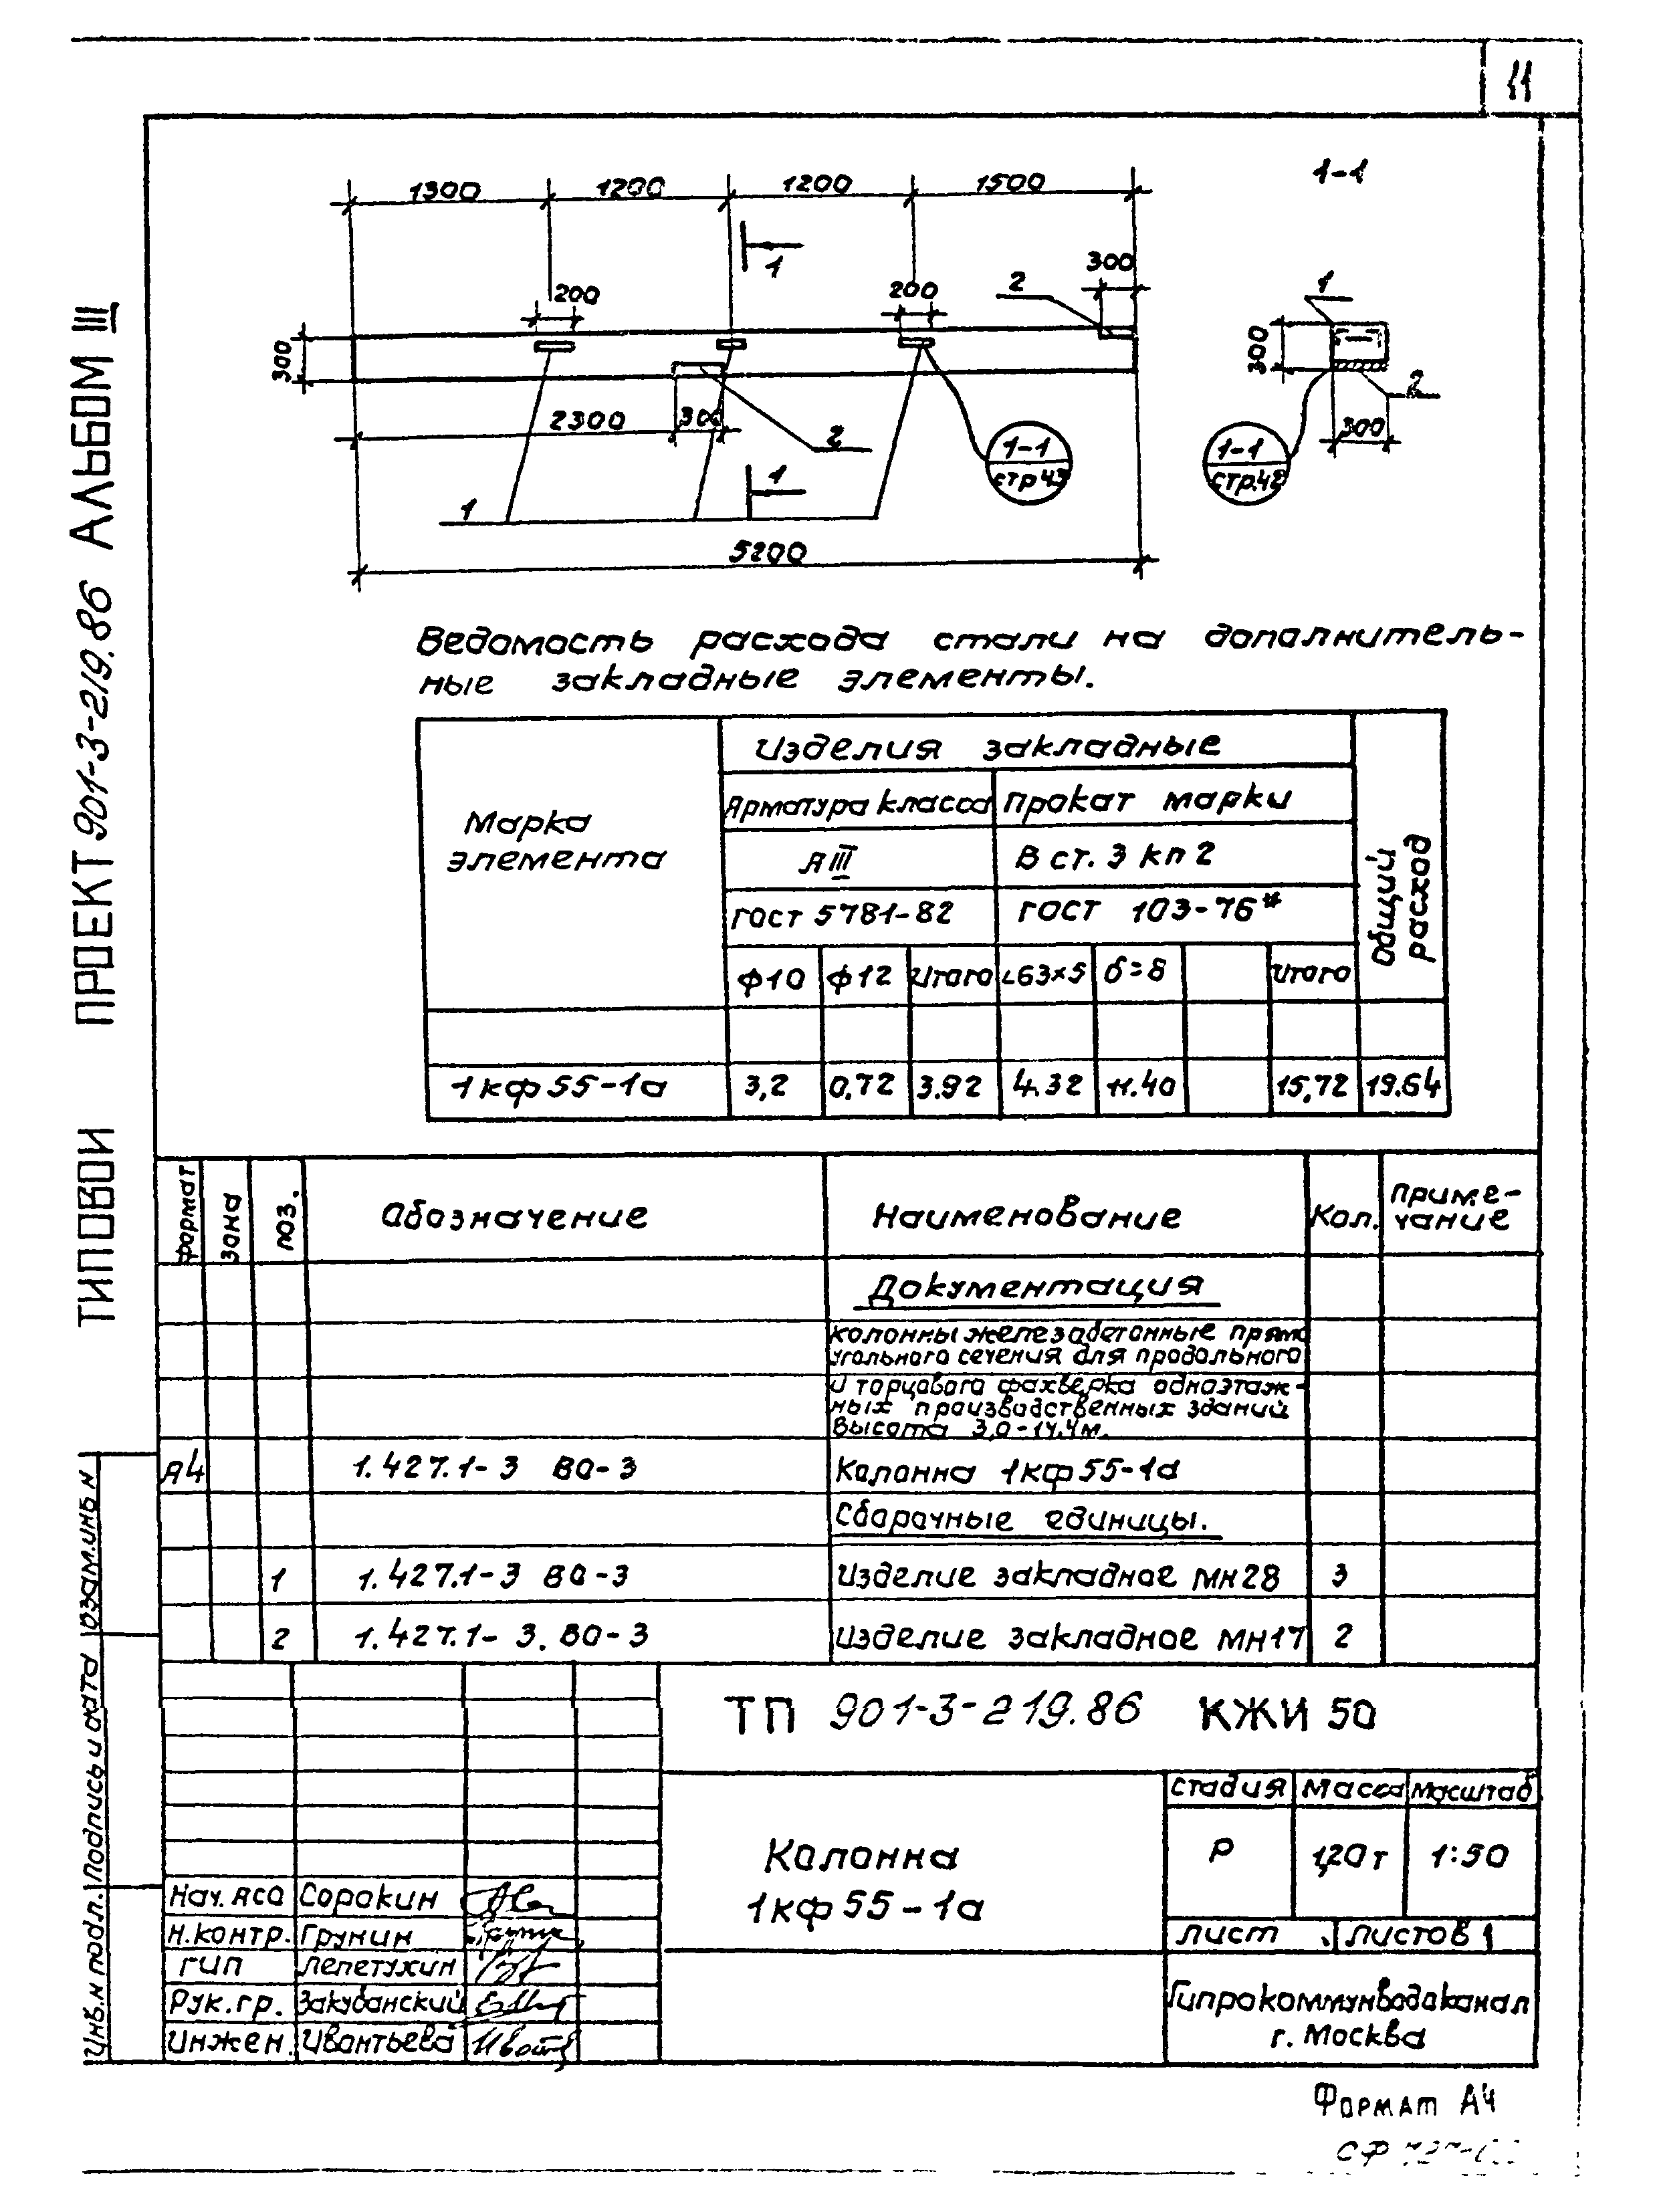 11
ТИПОВОЙ ПРОЕКТ 901-3-219.86 АЛЬБОМ III
1300 1200 1200 1500
1-1
1
300
2
1
200
200
300
300
2
2300
300
2
300
1-1
стр 43
1-1
стр.42
1
1
5200
Ведомость расхода стали на дополнитель-
ные закладные элементы.
Марка
элемента
Изделия закладные
Общий
расход
Арматура класса
Прокат марки
АIII
В ст. 3 кп 2
ГОСТ 5781-82
ГОСТ 103-76*
ф10 ф12 Итого L63×5 δ=8 Итого
1кф55-1а 3,2 0,72 3.92 4.32 11.40 15,72 19.64
формат зона поз. Обозначение Наименование Кол. Приме-
чание
Документация
колонны железобетонные прямо
угольного сечения для продольного
и торцового фахверка одноэтаж-
ных производственных зданий
Высота 3,0-14.4м.
А4 1.427.1-3 ВО-3 Колонна 1кф55-1а
Сборочные единицы.
1 1.427.1-3 ВО-3 Изделие закладное мн28 3
2 1.427.1-3. ВО-3 Изделие закладное мн17 2
Инв.н подл. Подпись и дата Взам.инв н
ТП 901-3-219.86 КЖИ 50
Колонна
1кф55-1а
стадия Масса Масштаб
Р 1,20т 1:50
Лист Листов 1
Гипрокоммунводоканал
г. Москва
Нач. АСО Сорокин
Н.контр. Грунин
ГИП Лепетухин
Рук.гр. Закубанский
Инжен. Ивантьева
Формат А4